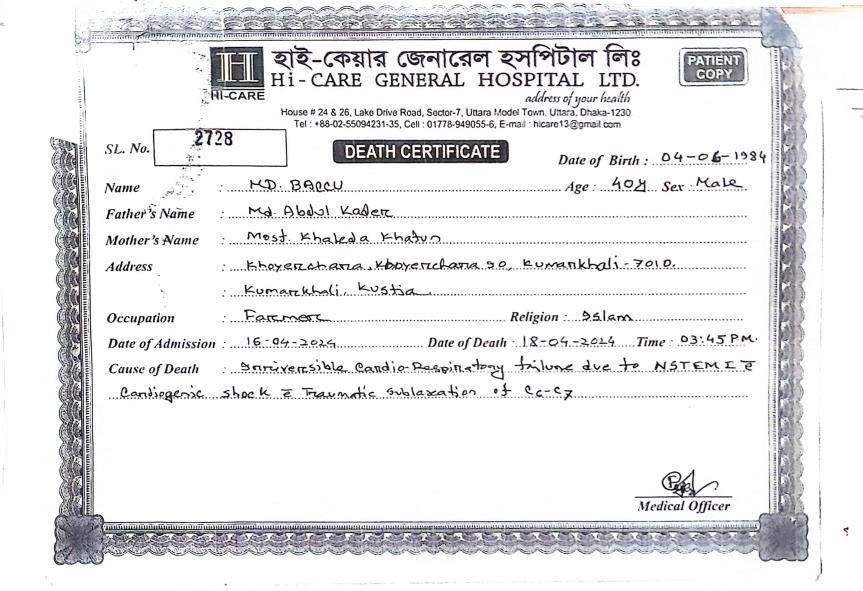 হাই-কেয়ার জেনারেল হসপিটাল লিঃ
Hi - CARE GENERAL HOSPITAL LTD.
HI-CARE
address of your health
PATIENT COPY
House # 24 & 26, Lake Drive Road, Sector-7, Uttara Model Town, Uttara, Dhaka-1230
Tel : +88-02-55094231-35, Cell : 01778-949055-6, E-mail : hicare13@gmail.com
SL. No. 2728
DEATH CERTIFICATE
Date of Birth : 04-06-1984
Name : MD. BACCU Age : 40y Sex : Male
Father's Name : Md. Abdul Kader
Mother's Name : Most. Khaleda Khatun
Address : Khoyerchara, Khoyerchara 50, Kumarkhali - 7010.
: Kumarkhali, Kustia
Occupation : Farmer Religion : Islam
Date of Admission : 16-04-2024 Date of Death : 18-04-2024 Time : 03:45 PM.
Cause of Death : Irriversible Cardio-Respiratory failure due to NSTEMI c̄
Cardiogenic shock c̄ Traumatic Sublaxation of C6-C7
Medical Officer